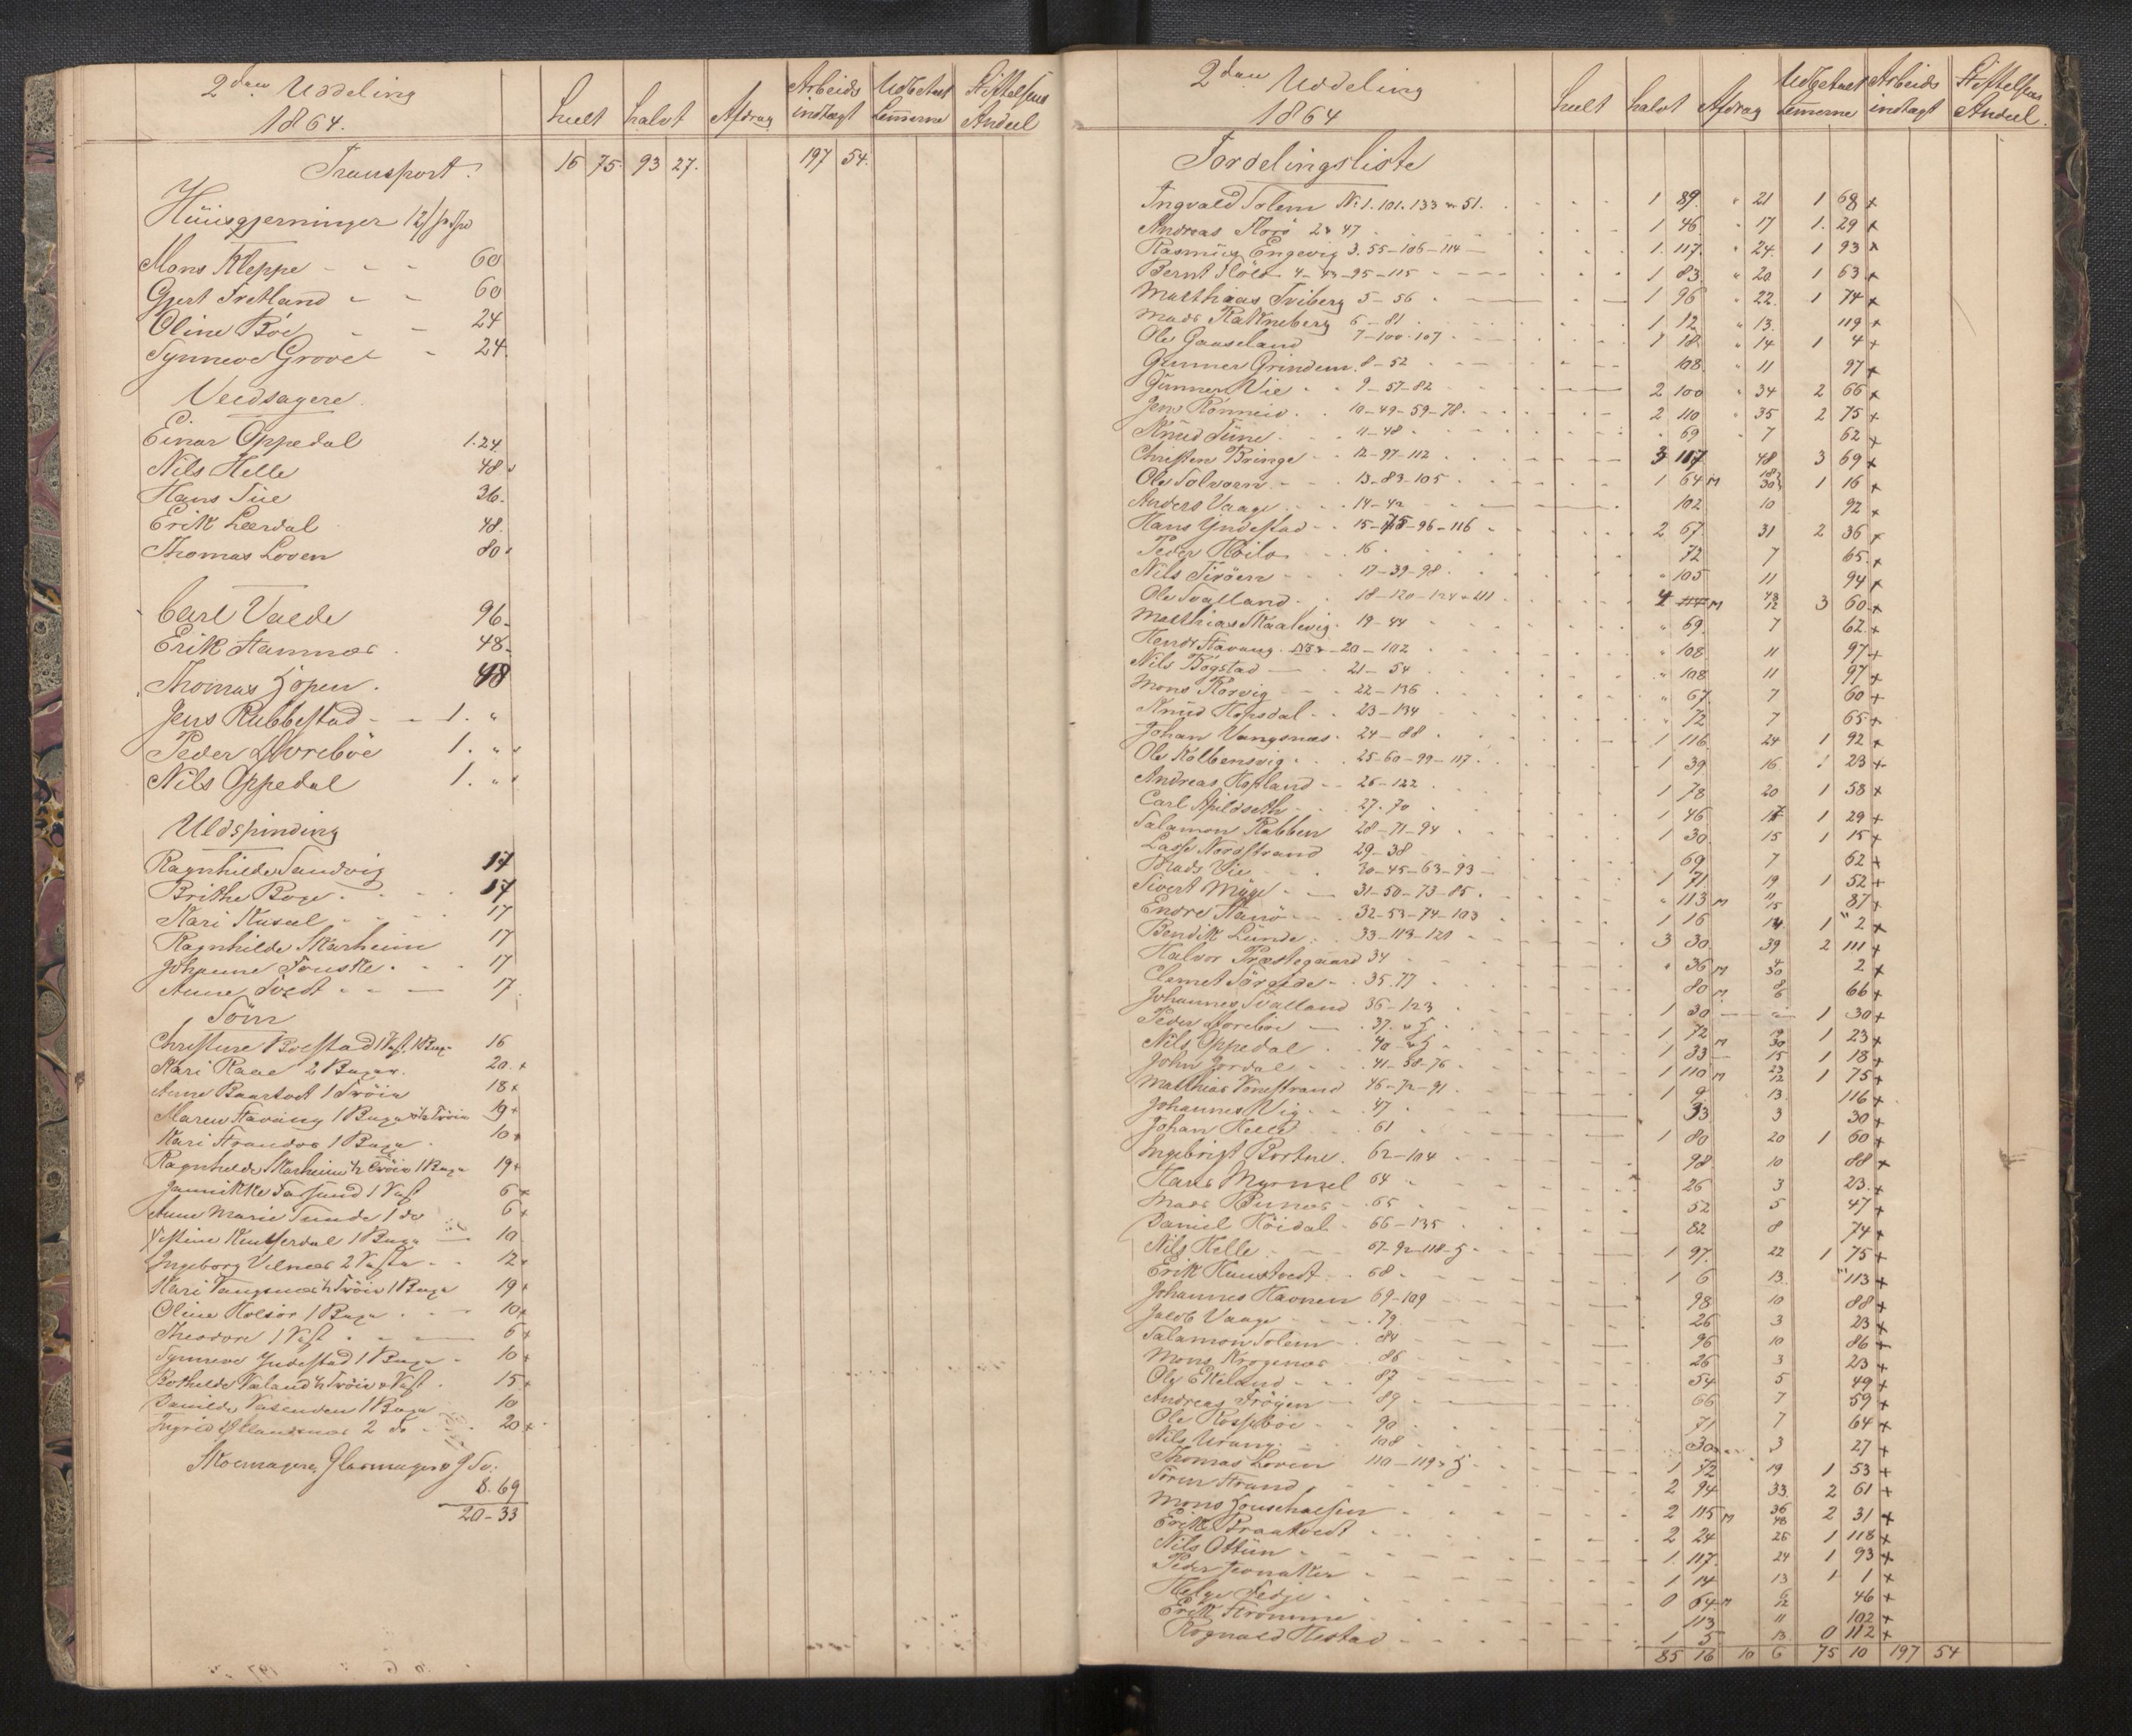 2den Uddeling
1864.
heelt halvt Afdrag Arbeids indtægt Udbetalt Lemerne Stiftelsens Andeel
Transport. 16 75. 93 27. 197 54.
Huusgjerninger
Mons Kleppe - - - 60
Gjert Tretland - - 60
Oline Böe - - 24
Synneve Grovet - 24.
Vedsagere.
Einar Oppedal 1.24.
Nils Helle 48
Hans Tue 36.
Erik Lærdal 48.
Thomas Loven 80
Carl Valde 96.
Erik Stamnæs . 48.
Thomas Hopen . 48
Jens Rubbestad - - 1. "
Peder Storeböe 1. "
Nils Oppedal 1. "
Uldspinding
Ragnhilde Sandvig 17
Brithe Boge . - - . 17
Kari - - - 17
Ragnhilde Skarheim 17
Johanne Fonske . - - 17
Anne Tvedt - - - 17.
Söm
Christine Bolstad 1 Vest. 1 Buxe 16
Kari Raae 2 Buxer. 20. x
Anne Baartvet 1 Tröie 18 x
Maren Stavang 1 Buxe & ½ Tröie 19 x
Kari Strandos 1 Buxe . 10 x
Ragnhilde Skarheim ½ Tröie 1 Buxe 19 x
Jannikke Farsund 1 Vest 6 x
Anne Marie Sunde 1 do 6 x
1 Buxe - 10
Ingeborg Vilnæs 2 Veste - - 12 x
Kari Vangsnæs ½ Tröie 1 Buxe 19 x
Oline 1 Buxe . - - 10 x
Theodore 1 Vest . - - 6 x
Synneve Yndestad 1 Buxe - 10 x
Bothilde Væland ½ Tröie & Vest . 15 x
Danilde 1 Buxe 10
Ingrid 2 do - - 20 x
Skoemagere, Glarmager & J Sv:
8. 69
20 - 33
2den Uddeling
1864
heelt halvt Afdrag Udbetalt Lemerne Arbeids indtægt Stiftelsens Andeel.
Fordelingsliste
Ingvald Solem No 1. 101. 133 & 51. 1 89. " 21 1 68 x
Andreas Florö 2 & 47 1 46 " 17 1. 29 x
Rasmus Engevig 3. 55 - 106 - 114 - 1. 117. " 24. 1 93 x
Bernt 4 - 43 - 95 - 115 1 83 " 20 1 63 x
Matthias Friberg 5 - 56 . 1 96 " 22. 1 74 x
Mads Rakneberg 6 - 81 1 12 " 13. 119 x
Ole Gauseland 7 - 100 - 107 1 18. " 14 1 4 x
Gunner Grindem. 8 - 52 108. " 11 97 x
Gunner Vie - - 9 - 57 - 82 2 100 " 34 2 66 x
Jens Rönneid . . 10 - 49 - 59 - 78. 2 110 " 35 2 75 x
Knud Tune . - 11 - 48 . 69 " 7 62 x
Christen Bringe - - 12 - 97 - 112 3 117 48 3 69 x
Ole Solvorn - - - 13 - 83 - 105 1 64 M 18 30 1 16 x
Anders Vaage . . . 14 - 42 102 10 92 x
Hans Yndestad - - 15 - 75 - 96 - 116 2 67. 31 2 36 x
Peder Höilo . - . 16 72 7 65. x
Nils Tiröen - - . 17 - 39 - 98 " 105 11 94 x
Ole Svalland . . 18 - 120 - 124 - 111 4 114 M 48 12 3 60 x
Matthias Skaalevig . 19 - 44 " 69. 7 62. x
Hendr Stavang . - 20 - 102 " 108. 11 97 x
Nils Bögstad - 21 - 54 " 108 11 97 x
Mons Rörvig - - 22 - 136 " 67. 7 60 x
Knud Hopsdal - - 23 - 134 " 72 7 65 x
Johan Vangsnæs . 24 - 88 1 116 24 1 92 x
Ole Kolbensvig . . . 25 - 60 - 99 - 117 1 39 16 1 23 x
Andreas Hopland - - 26 - 122 1 78 20 1 58 x
Carl Apildseth . . 27. 70 1 46 17 1 29 x
Salamon Rabben 28 - 71 - 94 1 30 15 1 15 x
Lasse Nordstrand 29 - 38 69 7 62 x
Mads Vie - - - 30 - 45 - 63 - 93 1 71 19 1 52 x
Sivert Myge - - 31 - 50 - 73 - 85 " 113 M 11 15 87 x
Endre Stanö - - . 32 - 53 - 74 - 103 1 16 14. 1 " 2 x
Bendik Lunde . . 33 - 113 - 121 3 30 39 2 111 x
Halvor Præstegaard 34 " 36 M 4 30 2 x
Clemet - . 35. 77 80 M 8 6 66 x
Johannes Svalland 36 - 123 1 30 - - 1 30 x
Peder Storeböe - . 37. & 1 72 M 19 30 1 23 x
Nils Oppedal . . 40 & 1 33 15 1 18 x
John Jordal - - . 41 - 58 - 76 1 110 M 23 12 1 75 x
Matthias Vonestrand 46 - 72 - 91 1 9 13. 116 x
Johannes Vig - - . 47 33 3 30 x
Johan Helle . - . 61 1 80 20 1 60 x
Ingebrigt Bortne . 62 - 104 98 10 88 x
Hans Myrmel 64 26 3 23. x
Mads - . 65 52 5 47 x
Daniel Höidal - 66 - 135 82 8 74 x
Nils Helle . - 67 - 92 - 118 1 97. 22 1 75 x
Erik . 68 1 6 13 " 113 x
Johannes Havnen 69 - 109 98 10 88 x
Jacob Vaage - - . 79 26 3 23 x
Salamon Solem . 84 96 10 86 x
Mons Krogenæs . 86 26 3 23 x
Ole Ekeland - - . 87 54 5 49 x
Andreas Fröyen - - 89 66 7 59 x
Ole Rosseböe - - 90 71 7 64 x
Nils Urang . - - 108 30 3 27 x
Thomas Loven 110 - 119 & 1 72 19 1 53 x
Sören Strand 2 94 33 2 61 x
Mons 2 115 M 36 48 2 31 x
Erik Braatvedt 2 24 26 1 118 x
Nils Ottun 1. 117. 24 1 93 x
Peder 1 14 13 1 1 x
Helge Fedje 0 64 M 6 12 46 x
Erik Stromme 113 11 102 x
Rognald Hestad 1 5 13 0 112 x
85 16 10 6 75 10 197 54